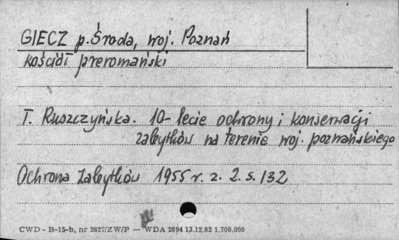 GIECZ p. Środa, woj. Poznań
kościół preromański
T. Ruszczyńska. 10-lecie ochrony i konserwacji
zabytków na terenie woj. poznańskiego
Ochrona Zabytków 1955 r. z. 2. s. 132
CWD - B-15-b, nr 2627/ZW/P — WDA 2694 13.12.62 1.700.000